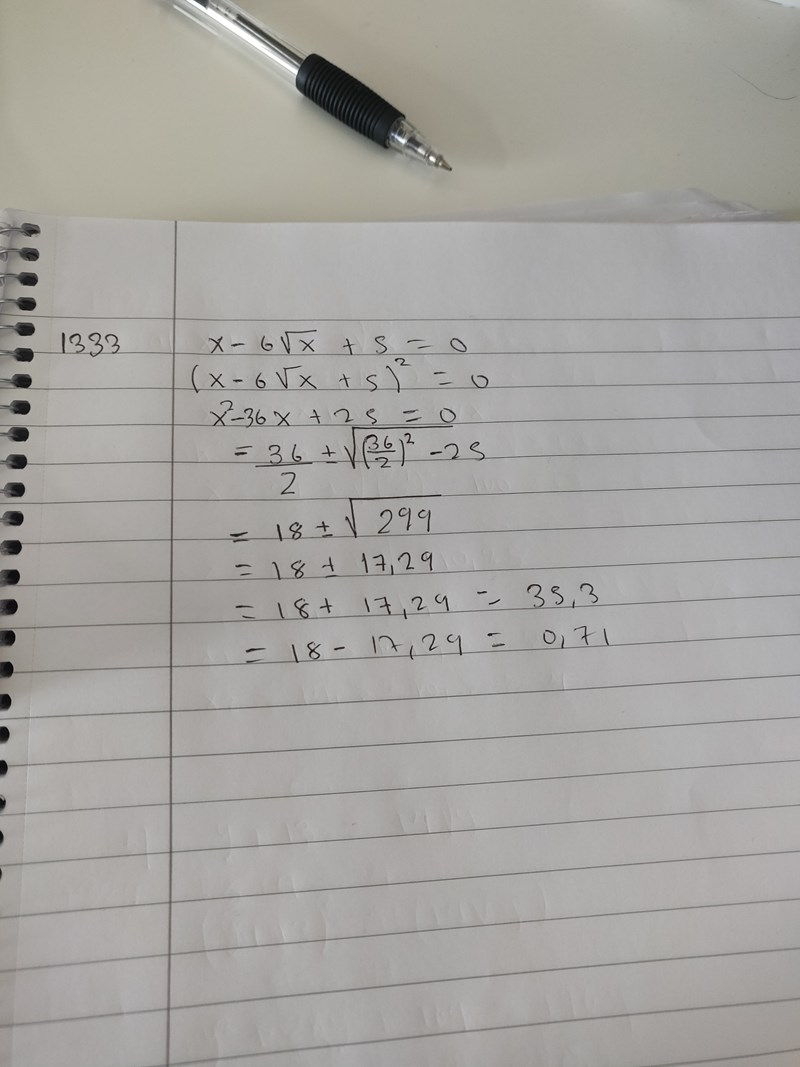 1333 x - 6√x + 5 = 0
(x - 6√x + 5)² = 0
x² - 36x + 25 = 0
= 36/2 ± √(36/2)² - 25
= 18 ± √299
= 18 ± 17,29
= 18 + 17,29 = 35,3
= 18 - 17,29 = 0,71